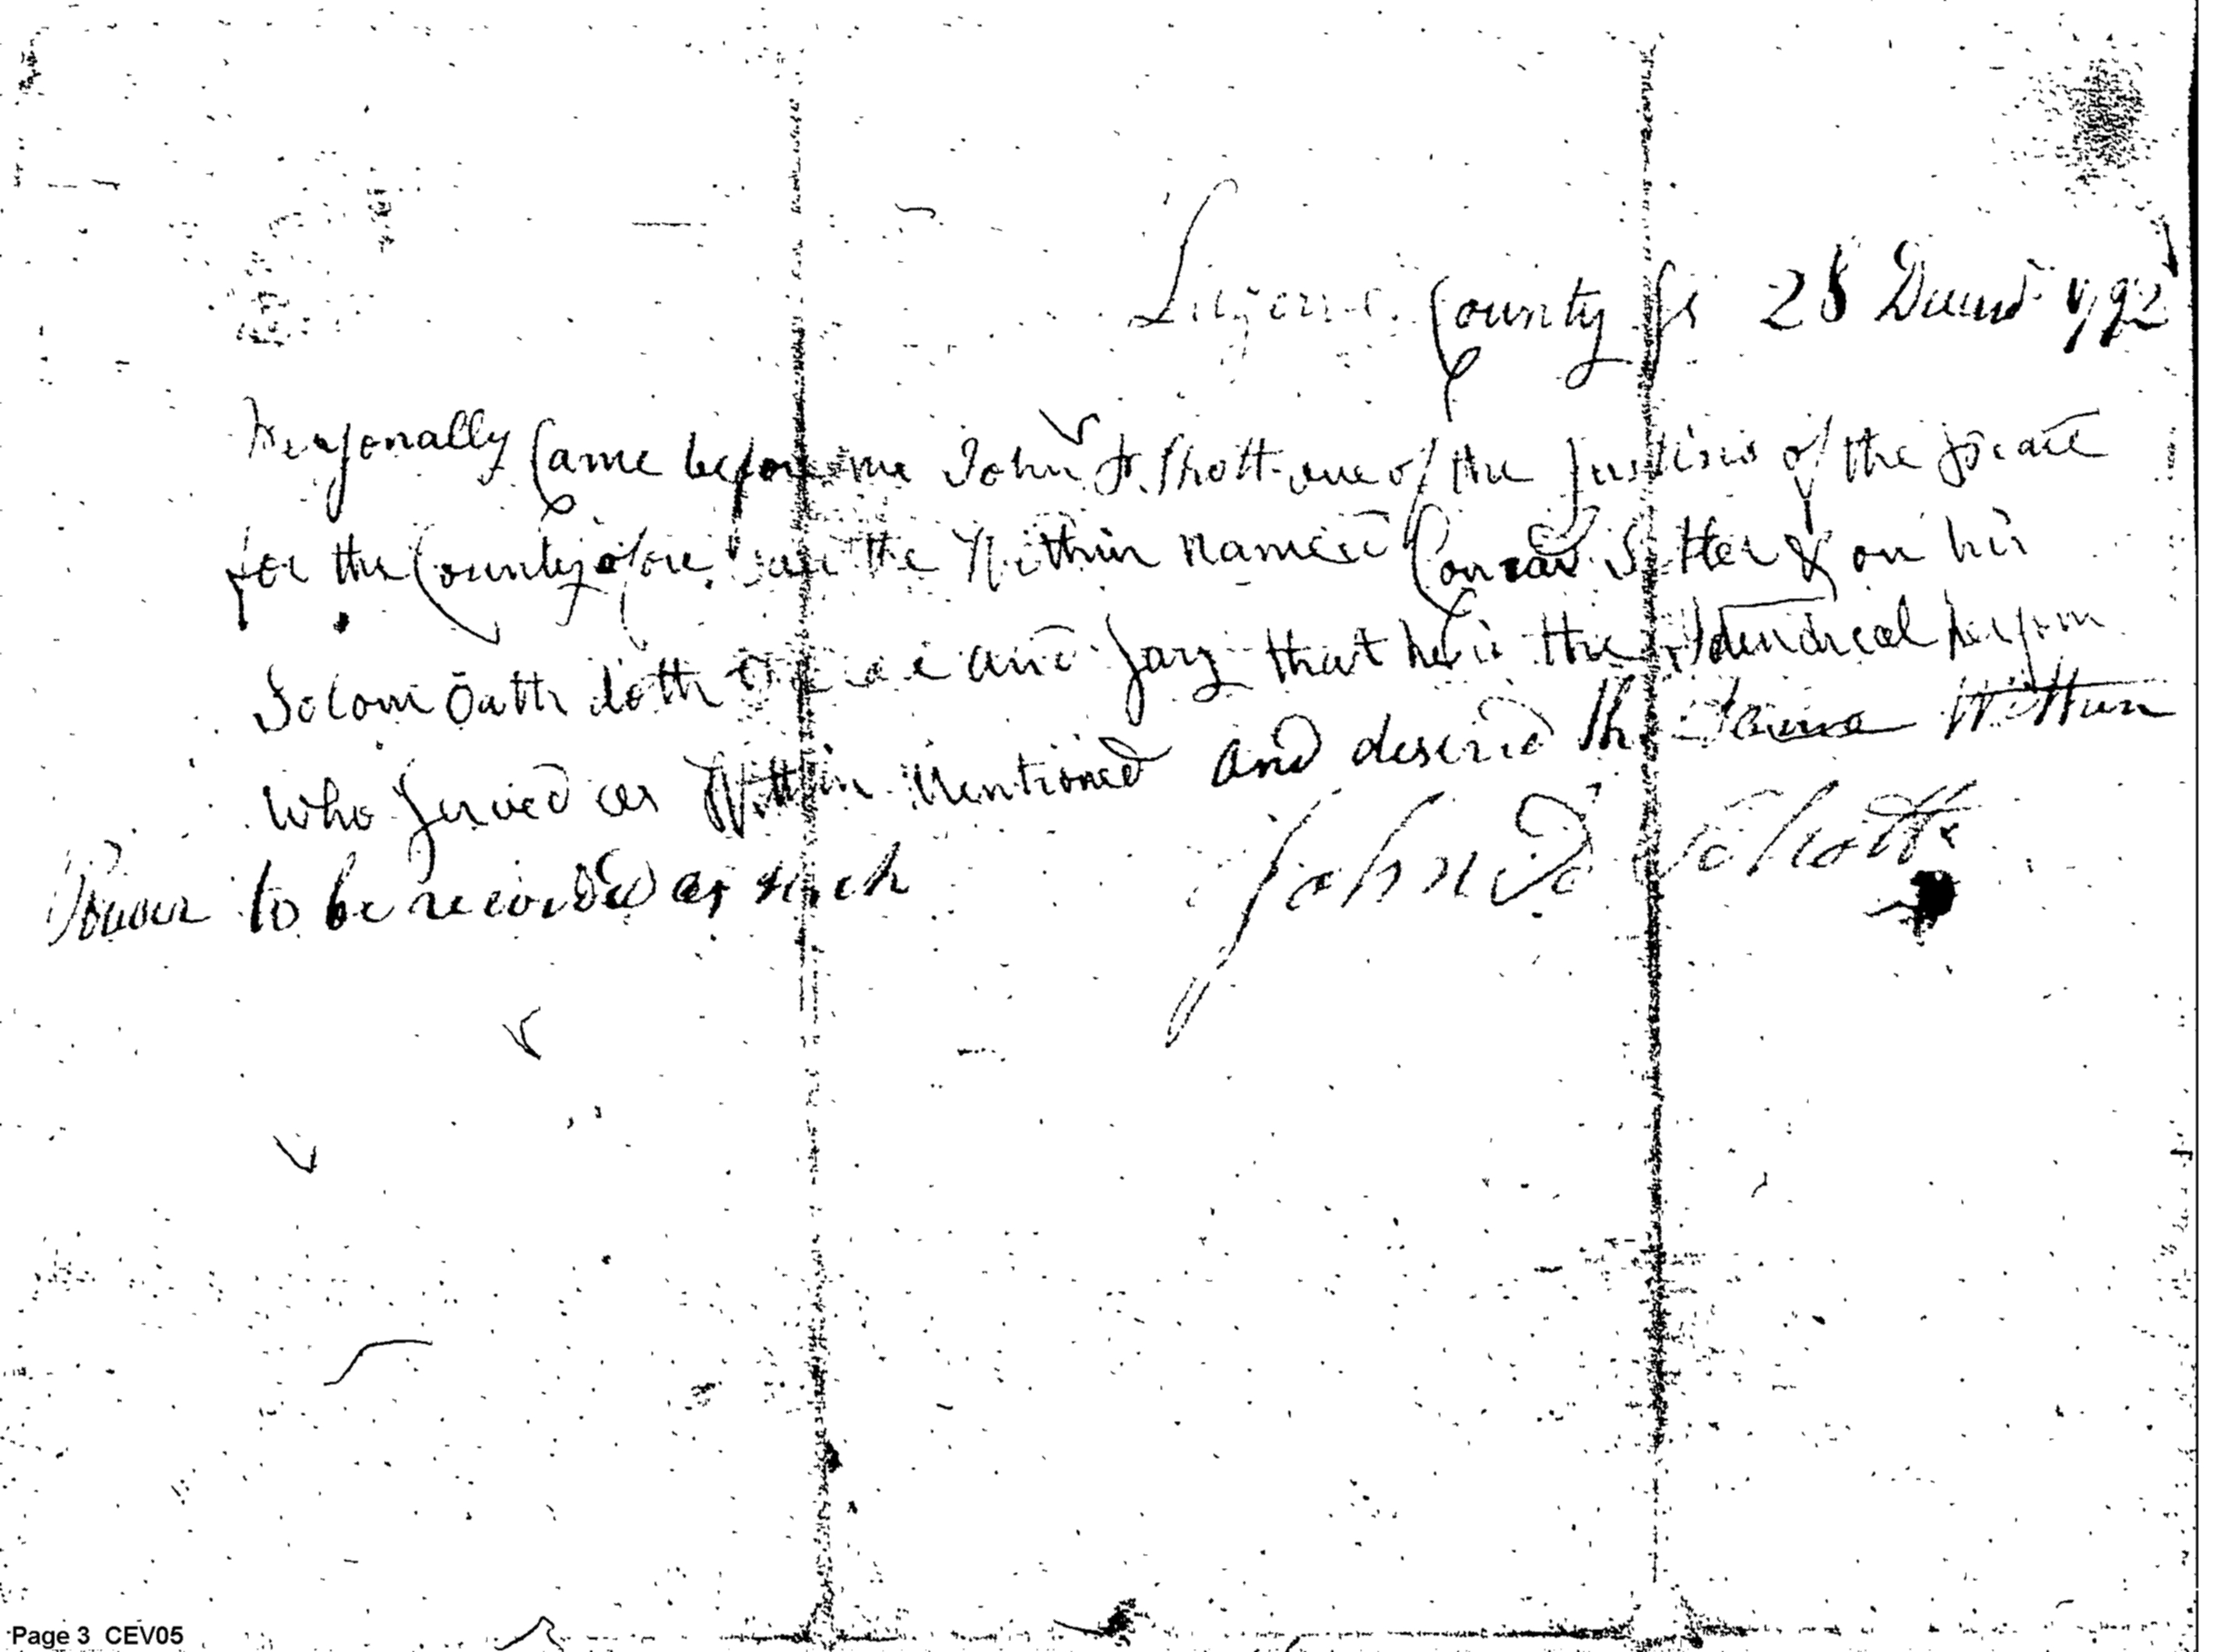 Luzerne County ss 28 Decemr 1792
Personally Came before me John P. Shott one of the Justisis of the peace
for the County afore said the Within named Conrad Sitter & on his
Solom Oath doth and say that he is the Identical person
who served as Within Mentioned and desired the Same Within
Power to be recorded as such
John P. Schott
Page 3 CEV05